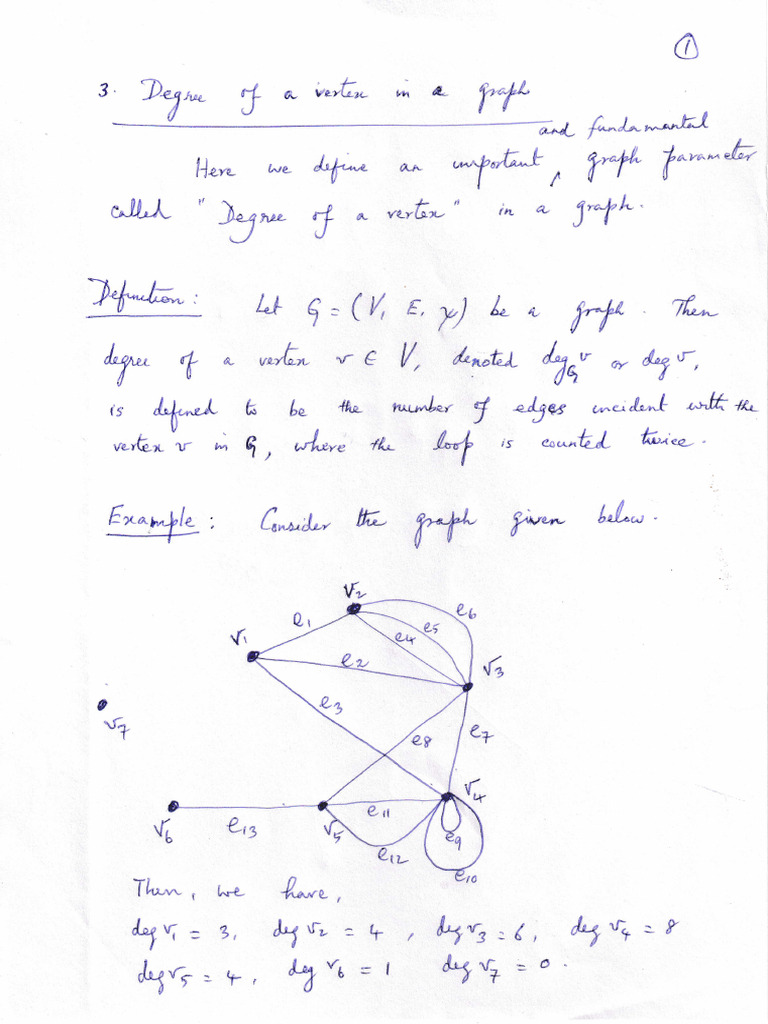 ①
3. Degree of a vertex in a graph
and fundamental
Here we define an important ‸ graph parameter
called "Degree of a vertex" in a graph.
Definition: Let G = (V, E, ψ) be a graph. Then
degree of a vertex v ∈ V, denoted deg_G v or deg v,
is defined to be the number of edges incident with the
vertex v in G, where the loop is counted twice.
Example: Consider the graph given below.
v₂
e₆
e₁
e₅
v₁
e₄
e₂
v₃
e₃
v₇
e₈
e₇
v₄
e₁₁
v₆
e₁₃
v₅
e₉
e₁₂
e₁₀
Then, we have,
deg v₁ = 3, deg v₂ = 4, deg v₃ = 6, deg v₄ = 8
deg v₅ = 4, deg v₆ = 1 deg v₇ = 0.